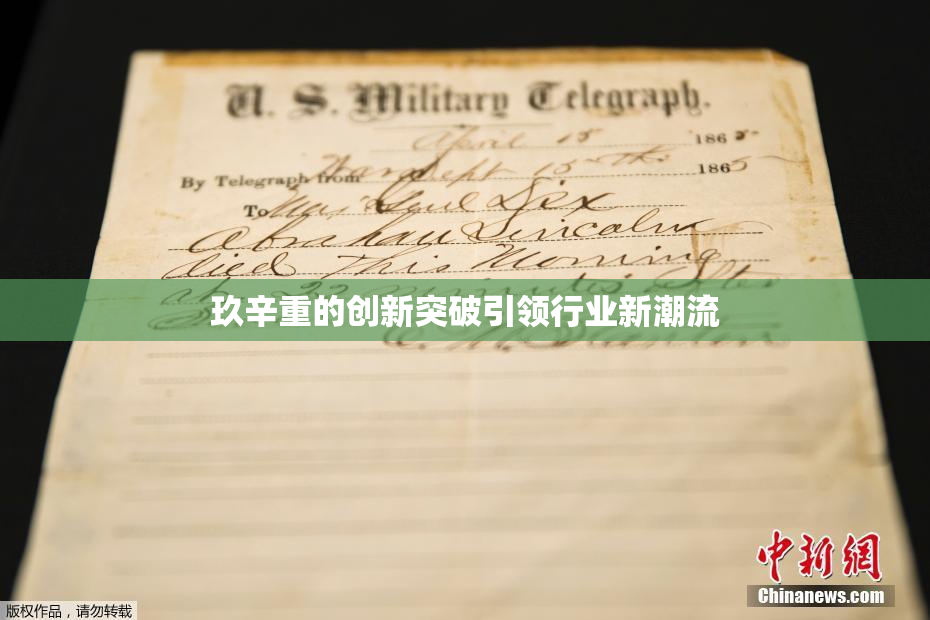 U. S. Military Telegraph.
April 15 1865
By Telegraph from War Dept 15th 1865
To Maj Genl Dix
Abraham Lincoln
died This Morning
at 22 minutes after
玖辛重的创新突破引领行业新潮流
中新网
Chinanews.com
版权作品，请勿转载